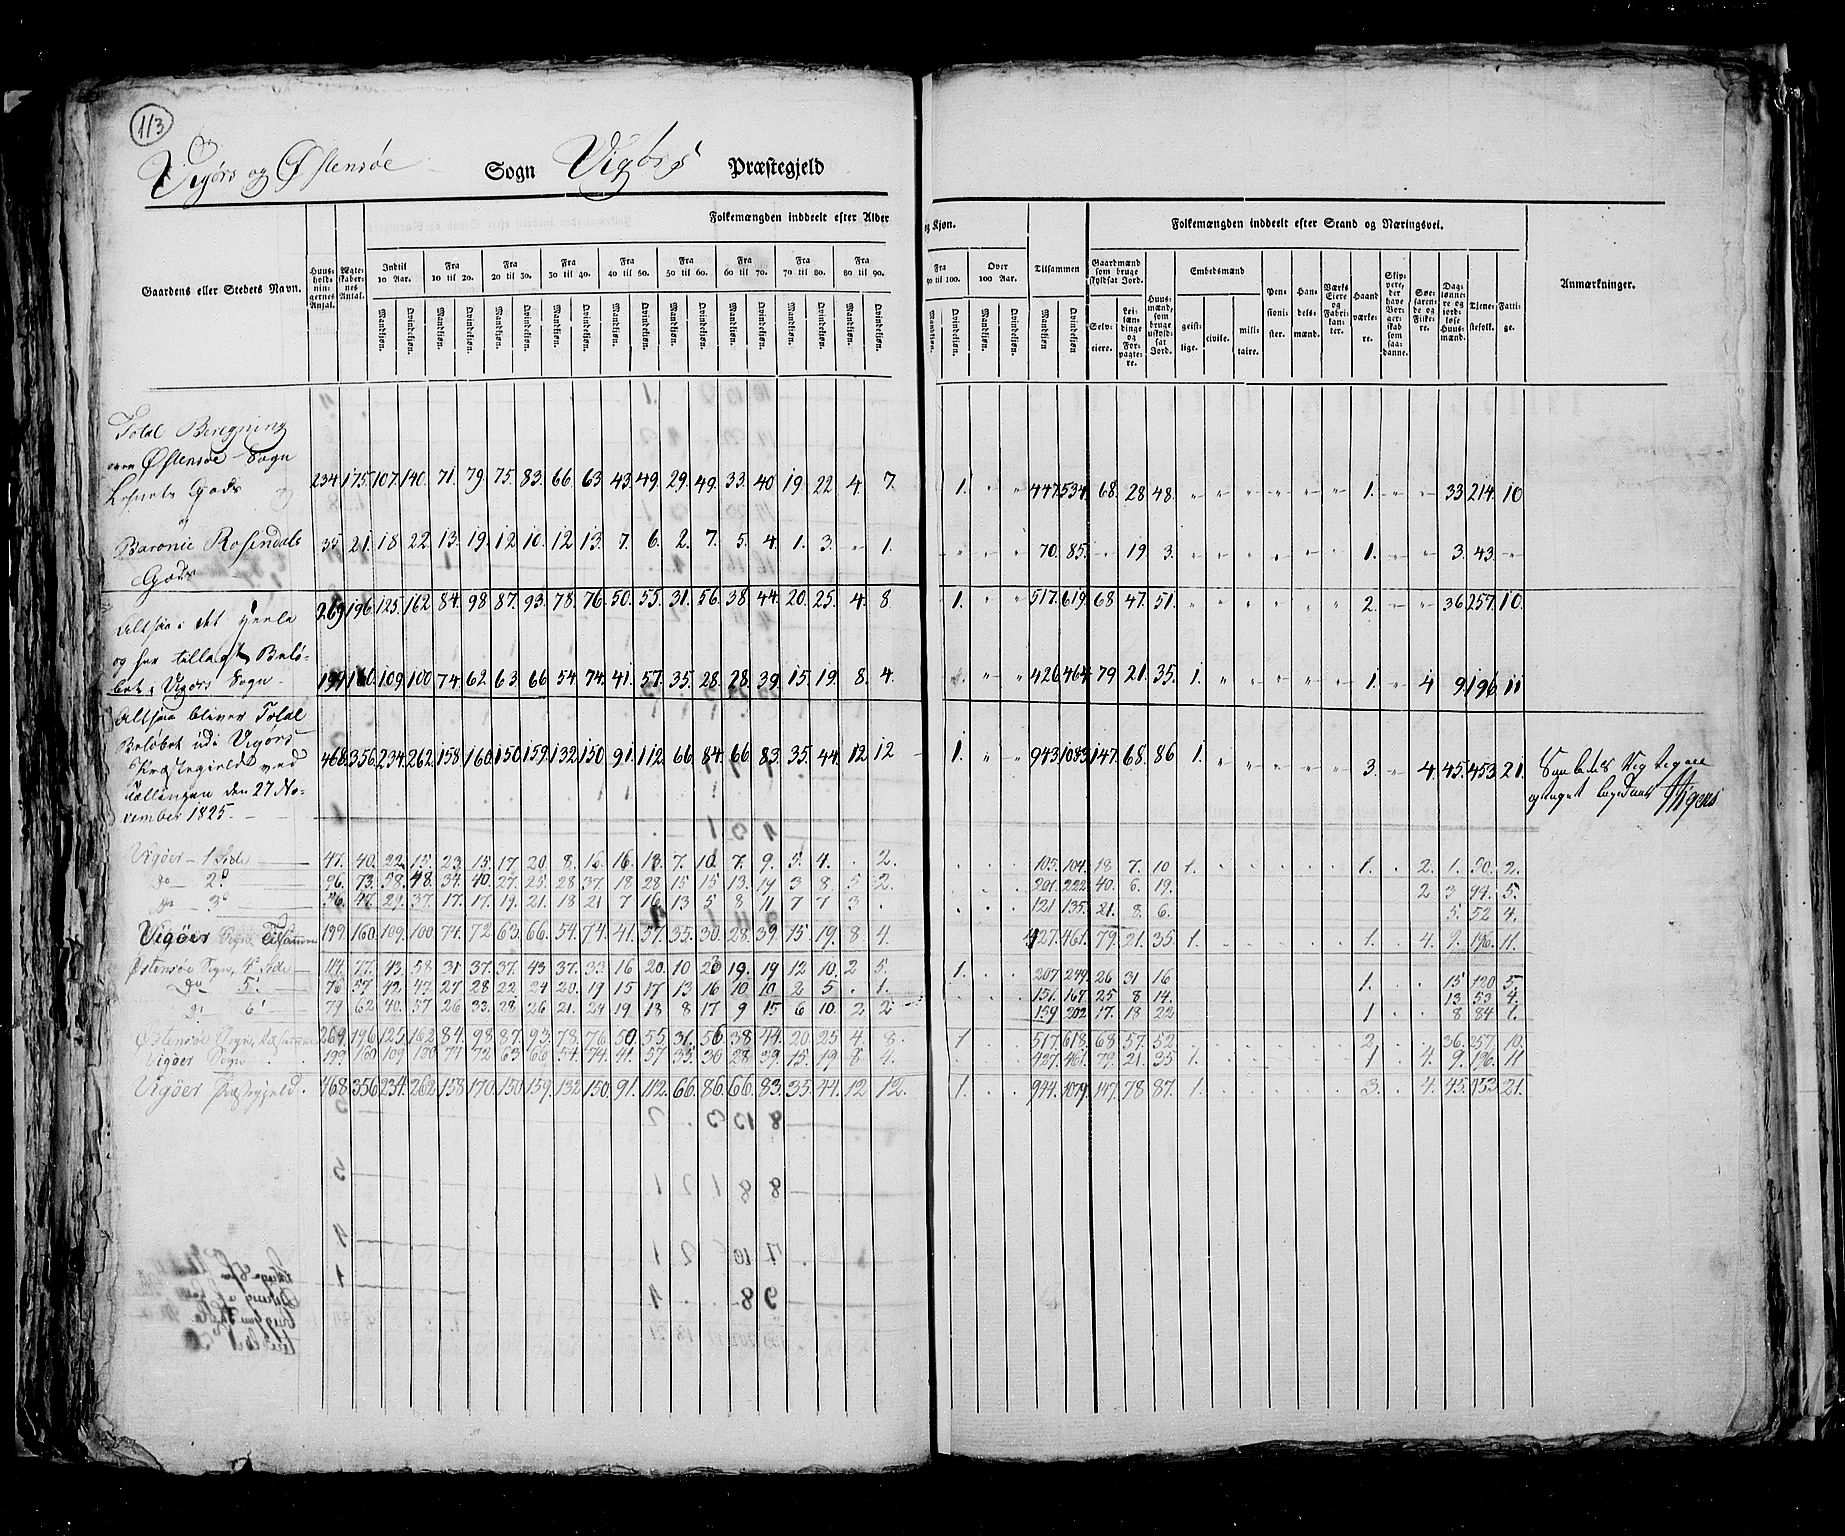 113
Vigørs og Østensøe Sogn Vigørs Præstegjeld
Folkemængden inddeelt efter Alder og Kjøn.
Folkemængden inddeelt efter Stand og Næringsvei.
Gaardens eller Stedets Navn.
Huusholdningernes Antal.
Ægteskabernes Antal.
Indtil 10 Aar.
Fra 10 til 20.
Fra 20 til 30.
Fra 30 til 40.
Fra 40 til 50.
Fra 50 til 60.
Fra 60 til 70.
Fra 70 til 80.
Fra 80 til 90.
Fra 90 til 100.
Over 100 Aar.
Tilsammen
Mandkjøn. Qvindekjøn.
Gaardmænd som bruge skyldsat Jord.
Selveiere.
Leilændinge og Forpagtere.
Huusmænd, som bruge uskyldsat Jord.
Embedsmænd
geistlige. civile. militaire.
Pensionister.
Handelsmænd.
Værks Eiere og Fabrikanter.
Haandværkere.
Skippere, der have Borgerskab som saadanne.
Søefarende og Fiskere.
Daglønnere og jordløse Huusmænd.
Tjenestefolk.
Fattige.
Anmærkninger.
Total Beregning
over Østensøe Sogn
Gods 234 175. 107. 140. 71. 79. 75. 83. 66 63 43. 49. 29. 49. 33. 40 19. 22 4. 7 1. " " 447 534. 68. 28 48. " " " " " " 1. " " 33 214. 10
og
Baronie Rosendals 35 21. 18 22. 13. 19. 12 10. 12 13. 7. 6. 2. 7. 5. 4. 1. 3. " 1. " " " 70. 85. " 19 3. " " " " " " 1. " " 3. 43. "
Gods
269 196. 125. 162 84. 98 87. 93. 78. 76. 50. 55. 31. 56. 38 44. 20. 25. 4. 8 1. " " 517. 619. 68 47. 51. " " " " " " 2. " " 36 257. 10.
Altsaa i det Heele
og her tillagt Belø-
bet i Vigørs Sogn 199 160. 109. 100 74. 62. 63. 66 54 74. 41. 57. 35. 28. 28. 39. 15. 19. 8. 4. " " " 426 464. 79 21. 35. 1. " " " " " 1. " 4 9. 196 11
Altsaa bliver Total
Beløbet udi Vigørs
Præstegield ved 468. 356. 234. 262. 158 160. 150. 159. 132 150 91. 112. 66 84. 66 83. 35. 44. 12 12 1. " " 943 1083. 147. 68. 86 1. " " " " " 3. " 4. 45. 453. 21.
Tællingen den 27 No-
vember 1825.
Vigøer - 1 Side 47. 40. 22. 15. 23. 15. 17. 20. 8. 16. 16. 13. 7. 10. 7. 9. 5. 4. . 2. . . . 105. 104. 18 7. 10 1. . . . . . 1. . 2. 1. 50. 2.
Do - 2d 96. 73. 58. 48. 34. 40. 27. 25. 28 37. 18 28 15 15 13. 19 3 8. 5 2. 201. 222. 40. 6. 19. 2 3 94. 5.
Do - 3d 56. 47. 29. 37. 17. 17. 19. 21. 18 21 7 16 13 5 8 11 7 7 3 . . . . 121 135. 21. 8. 6. 5. 52 4.
Vigøer Sogn Tilsammen 199. 160. 109. 100 74. 72 63. 66. 54. 74. 41. 57. 35. 30. 28. 39 15 19. 8 4. 427. 461. 79. 21. 35. 1. . . . . . 1. . 4. 9. 196. 11.
Østensøe Sogn, 4de Side 114. 77. 43. 58 31 37. 37. 43 37. 33 16 20. 10 23 19. 19 12 10. 2 5. 1. 207 249 26 31 16 1. 15 120 5.
Do 5' 76 57 42. 47 27 28 22 24 20 19 15 17 13 16 10 10 2 5 . 1. 151. 167. 25 8 14. 13. 53 4.
Do 6' 79 62 40. 57 26 33 28 26 21 24 19 18 8 17 9 15 6 10. 2 2 159 202 17. 18 22 1 8 84 1.
Østensøe Sogn, tilsammen 269. 196. 125. 162. 84. 98. 87. 93. 78. 76. 50. 55. 31. 56. 38 44. 20. 25 4. 8. 1 . . 517. 618. 68 57. 52. 2. 36. 257. 10.
Vigøer Sogn 199 160 109 100 74 72 63. 66. 54. 74. 41. 57 35. 30 28. 39. 15. 19 8 4. 427. 461. 79. 21. 35 1. 1 4. 9. 196. 11
Vigøer Præstegjeld. 468. 356 234. 262 158 170. 150. 159. 132 150. 91. 112. 66 86 66 83. 35. 44. 12 12. 1. . . 944. 1079. 147. 78. 87. 1. . . . . . 3. . 4. 45. 453. 21.